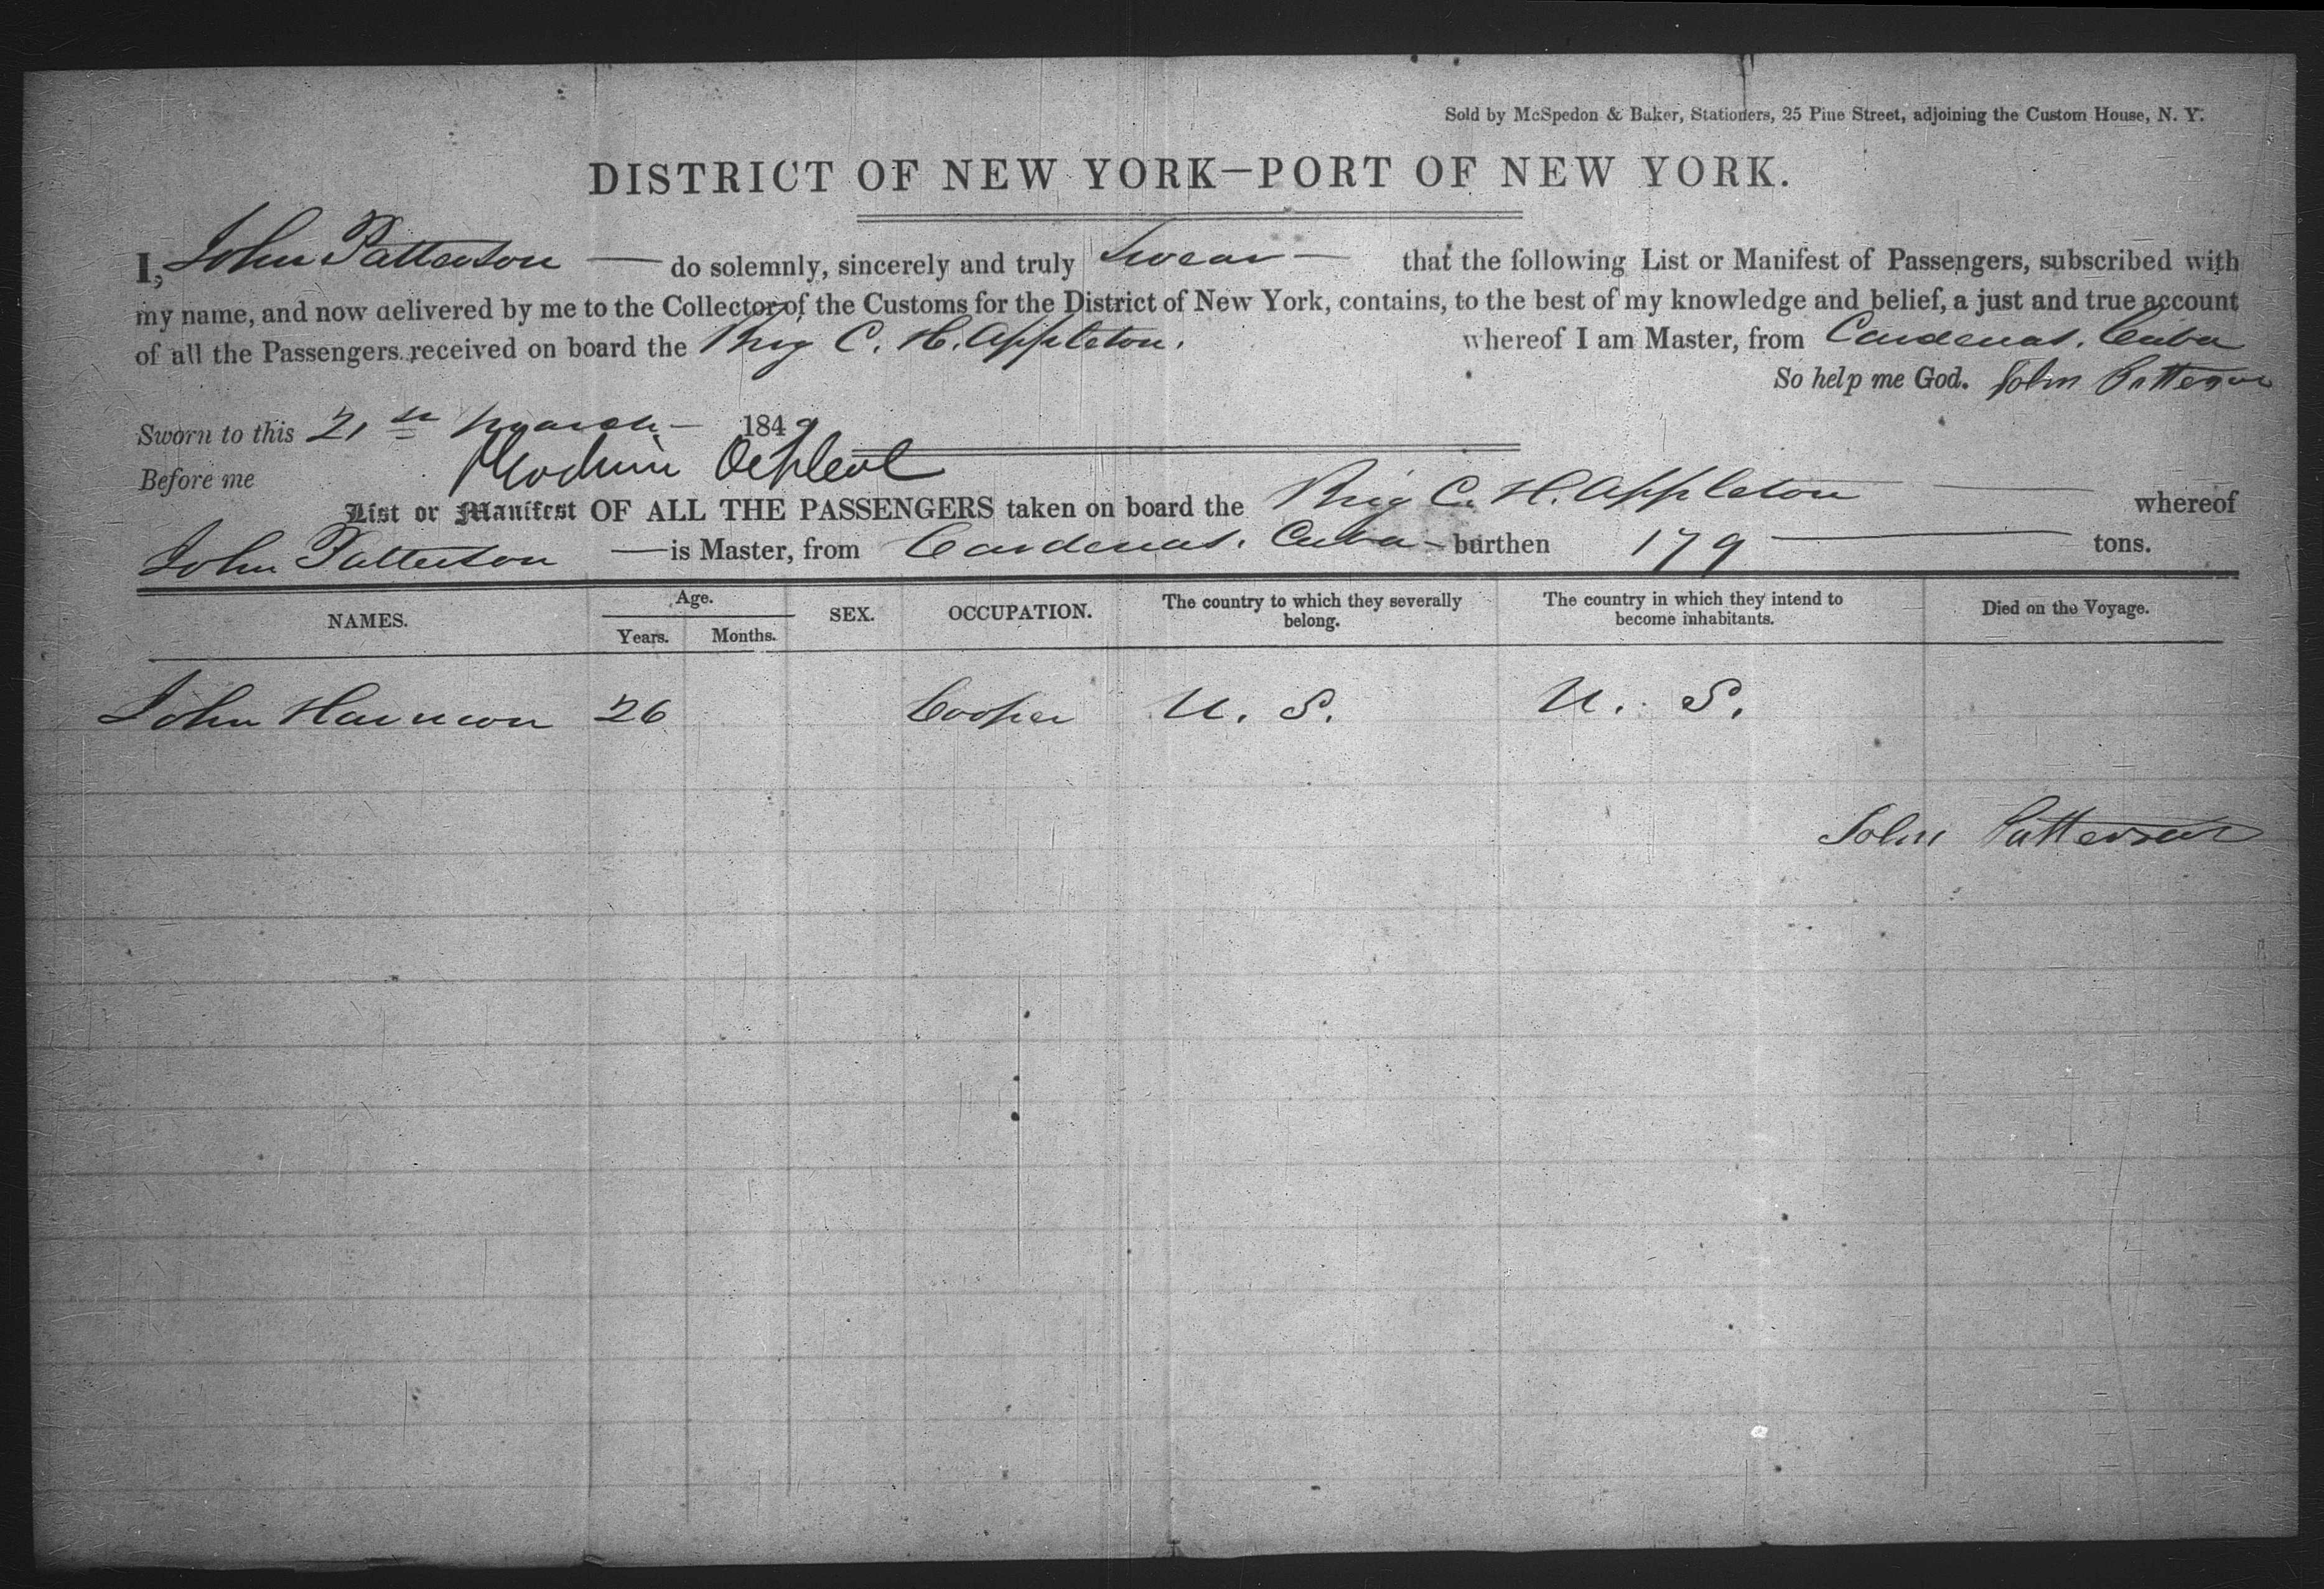 Sold by McSpedon & Baker, Stationers, 25 Pine Street, adjoining the Custom House, N. Y.
DISTRICT OF NEW YORK—PORT OF NEW YORK.
I, John Patterson — do solemnly, sincerely and truly Swear — that the following List or Manifest of Passengers, subscribed with
my name, and now delivered by me to the Collector of the Customs for the District of New York, contains, to the best of my knowledge and belief, a just and true account
of all the Passengers received on board the Brig C. H. Appleton. whereof I am Master, from Cardenas. Cuba
So help me God. John Patterson
Sworn to this 21st March — 1849
Before me
List or Manifest OF ALL THE PASSENGERS taken on board the Brig C. H. Appleton — whereof
John Patterson — is Master, from Cardenas. Cuba - burthen 179 — tons.
NAMES. Age. SEX. OCCUPATION. The country to which they severally belong. The country in which they intend to become inhabitants. Died on the Voyage.
Years. Months.
John 26 Cooper U. S. U. S.
John Patterson